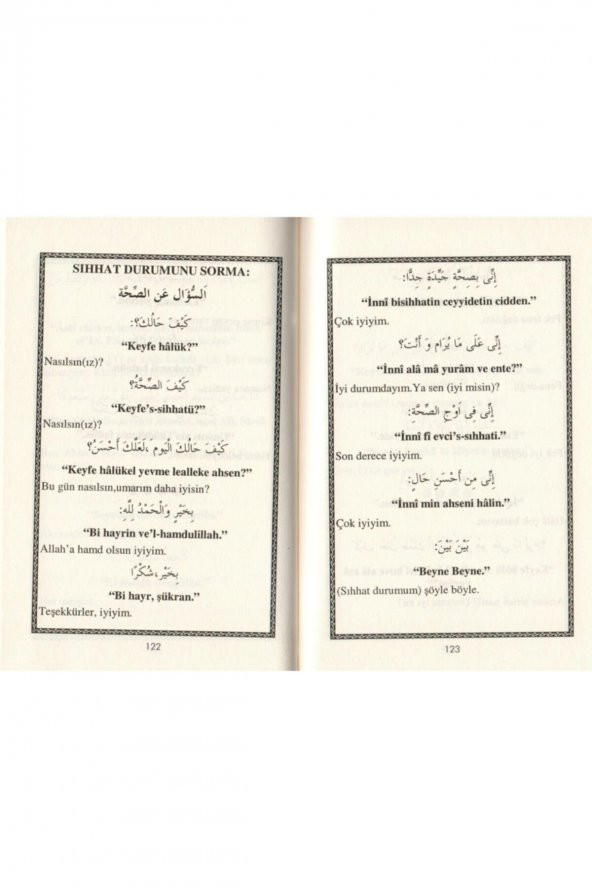 SIHHAT DURUMUNU SORMA:
اَلسُّؤَال عَنِ الصِّحَّة
كَيْفَ حَالُكَ؟:
“Keyfe hâlük?”
Nasılsın(ız)?
كَيْفَ الصِّحَّةُ؟
“Keyfe’s-sihhatü?”
Nasılsın(ız)?
كَيْفَ حَالُكَ الْيَومَ ،لَعَلَّكَ أَحْسَنُ؟
“Keyfe hâlükel yevme lealleke ahsen?”
Bu gün nasılsın,umarım daha iyisin?
بِخَيْرٍ وَالْحَمْدُ لِلَّهِ:
“Bi hayrin ve’l-hamdulillah.”
Allah’a hamd olsun iyiyim.
بِخَيْر،شُكْرًا
“Bi hayr, şükran.”
Teşekkürler, iyiyim.
122
إِنِّى بِصِحَّةٍ جَيِّدَةٍ جِدًّا:
“İnnî bisihhatin ceyyidetin cidden.”
Çok iyiyim.
إِنِّى عَلَى مَا يُرَام وَ أَنْتَ؟
“İnnî alâ mâ yurâm ve ente?”
İyi durumdayım.Ya sen (iyi misin)?
إِنِّى فِى أَوْجِ الصِّحَّةِ:
“İnnî fî evci’s-sıhhati.”
Son derece iyiyim.
إِنِّى مِن أَحْسَنِ حَالٍ:
“İnnî min ahseni hâlin.”
Çok iyiyim.
بَيْنَ بَيْنَ:
“Beyne Beyne.”
(Sıhhat durumum) şöyle böyle.
123